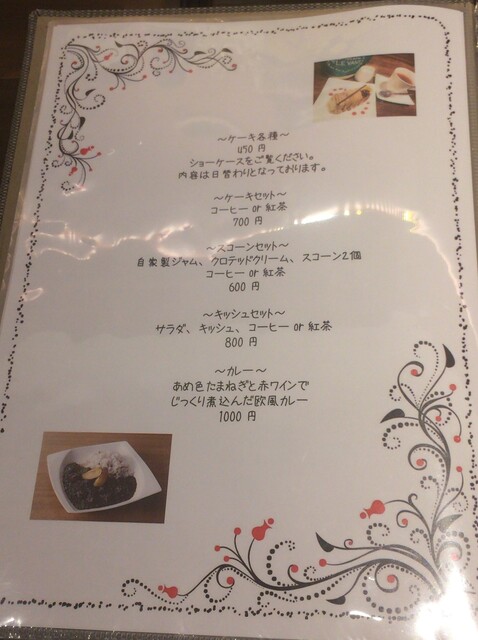 ～ケーキ各種～
450 円
ショーケースをご覧ください。
内容は日替わりとなっております。
～ケーキセット～
コーヒー or 紅茶
700 円
～スコーンセット～
自家製ジャム、クロテッドクリーム、スコーン2個
コーヒー or 紅茶
600 円
～キッシュセット～
サラダ、キッシュ、コーヒー or 紅茶
800 円
～カレー～
あめ色たまねぎと赤ワインで
じっくり煮込んだ欧風カレー
1000 円